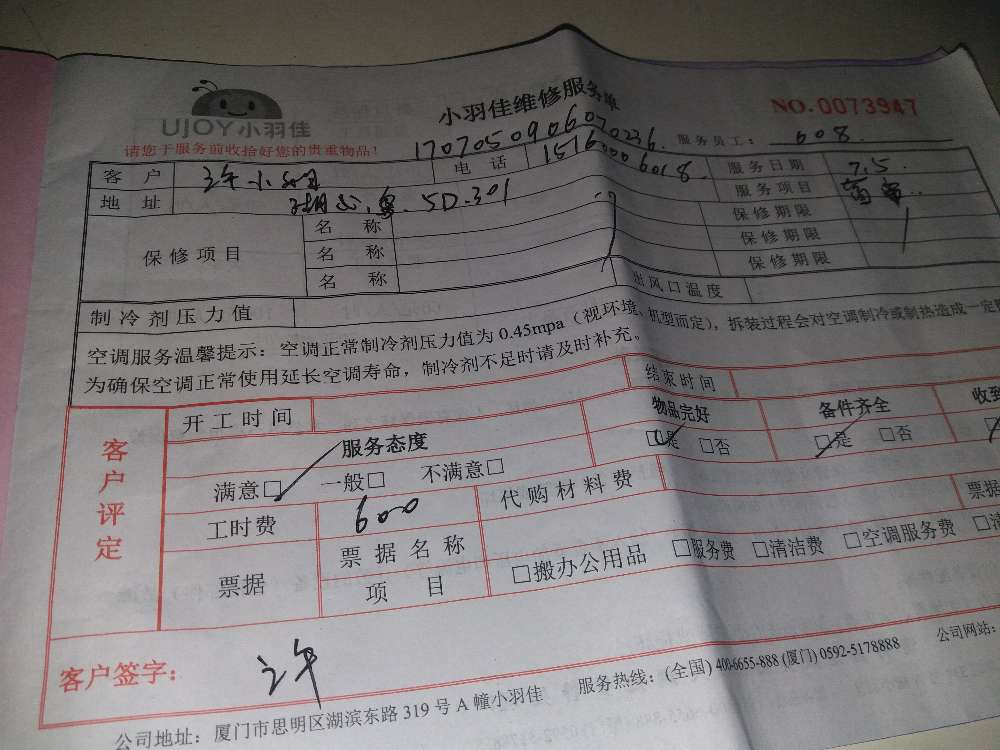 UJOY小羽佳
小羽佳维修服务单
NO.0073947
请您于服务前收拾好您的贵重物品!
1707050906070236
服务员工: 608.
客户 许小姐 电话 15160006018. 服务日期 7.5
地址 5D.301 服务项目
保修项目 名称 保修期限
名称 保修期限
名称 保修期限
制冷剂压力值 出风口温度
空调服务温馨提示：空调正常制冷剂压力值为 0.45mpa（视环境、机型而定），拆装过程会对空调制冷或制热造成一定
为确保空调正常使用延长空调寿命，制冷剂不足时请及时补充。
客户评定
开工时间 结束时间
服务态度 物品完好 备件齐全 收到
满意□ 一般□ 不满意□ □是 □否 □是 □否
工时费 600 代购材料费
票据 票据名称 票据
项目 □搬办公用品 □服务费 □清洁费 □空调服务费 □清
客户签字： 许
公司地址：厦门市思明区湖滨东路 319 号 A 幢小羽佳 服务热线：(全国) 400-6655-888 (厦门) 0592-5178888 公司网站：